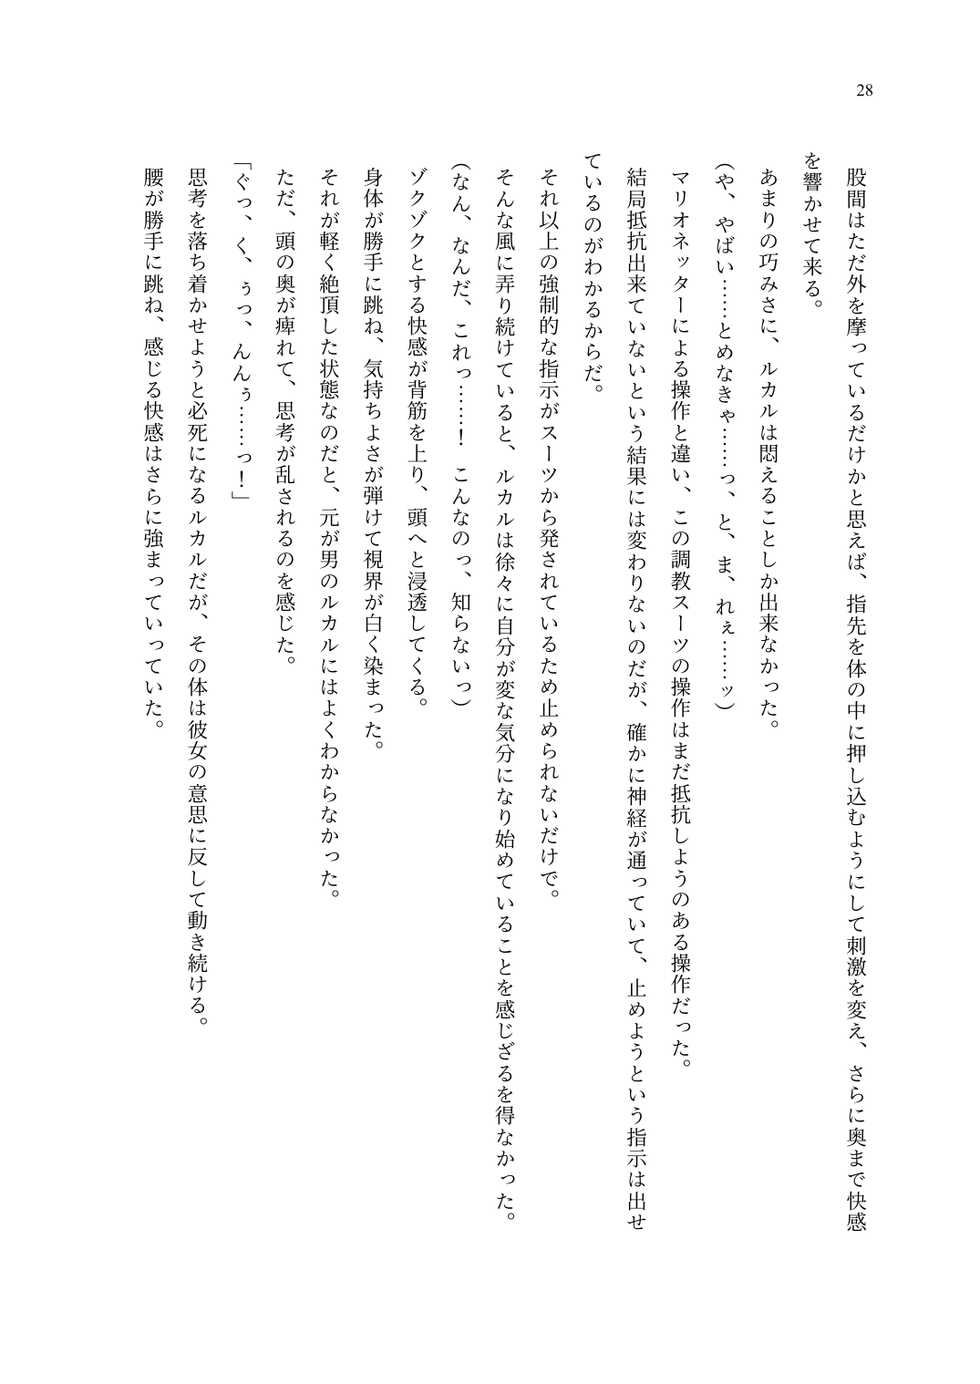 28
股間はただ外を摩っているだけかと思えば、指先を体の中に押し込むようにして刺激を変え、さらに奥まで快感
を響かせて来る。
あまりの巧みさに、ルカルは悶えることしか出来なかった。
(や、やばい……とめなきゃ……っ、と、ま、れぇ……ッ)
マリオネッターによる操作と違い、この調教スーツの操作はまだ抵抗しようのある操作だった。
結局抵抗出来ていないという結果には変わりないのだが、確かに神経が通っていて、止めようという指示は出せ
ているのがわかるからだ。
それ以上の強制的な指示がスーツから発されているため止められないだけで。
そんな風に弄り続けていると、ルカルは徐々に自分が変な気分になり始めていることを感じざるを得なかった。
(なん、なんだ、これっ……！　こんなのっ、知らないっ)
ゾクゾクとする快感が背筋を上り、頭へと浸透してくる。
身体が勝手に跳ね、気持ちよさが弾けて視界が白く染まった。
それが軽く絶頂した状態なのだと、元が男のルカルにはよくわからなかった。
ただ、頭の奥が痺れて、思考が乱されるのを感じた。
「ぐっ、く、ぅっ、んんぅ……っ！」
思考を落ち着かせようと必死になるルカルだが、その体は彼女の意思に反して動き続ける。
腰が勝手に跳ね、感じる快感はさらに強まっていっていた。